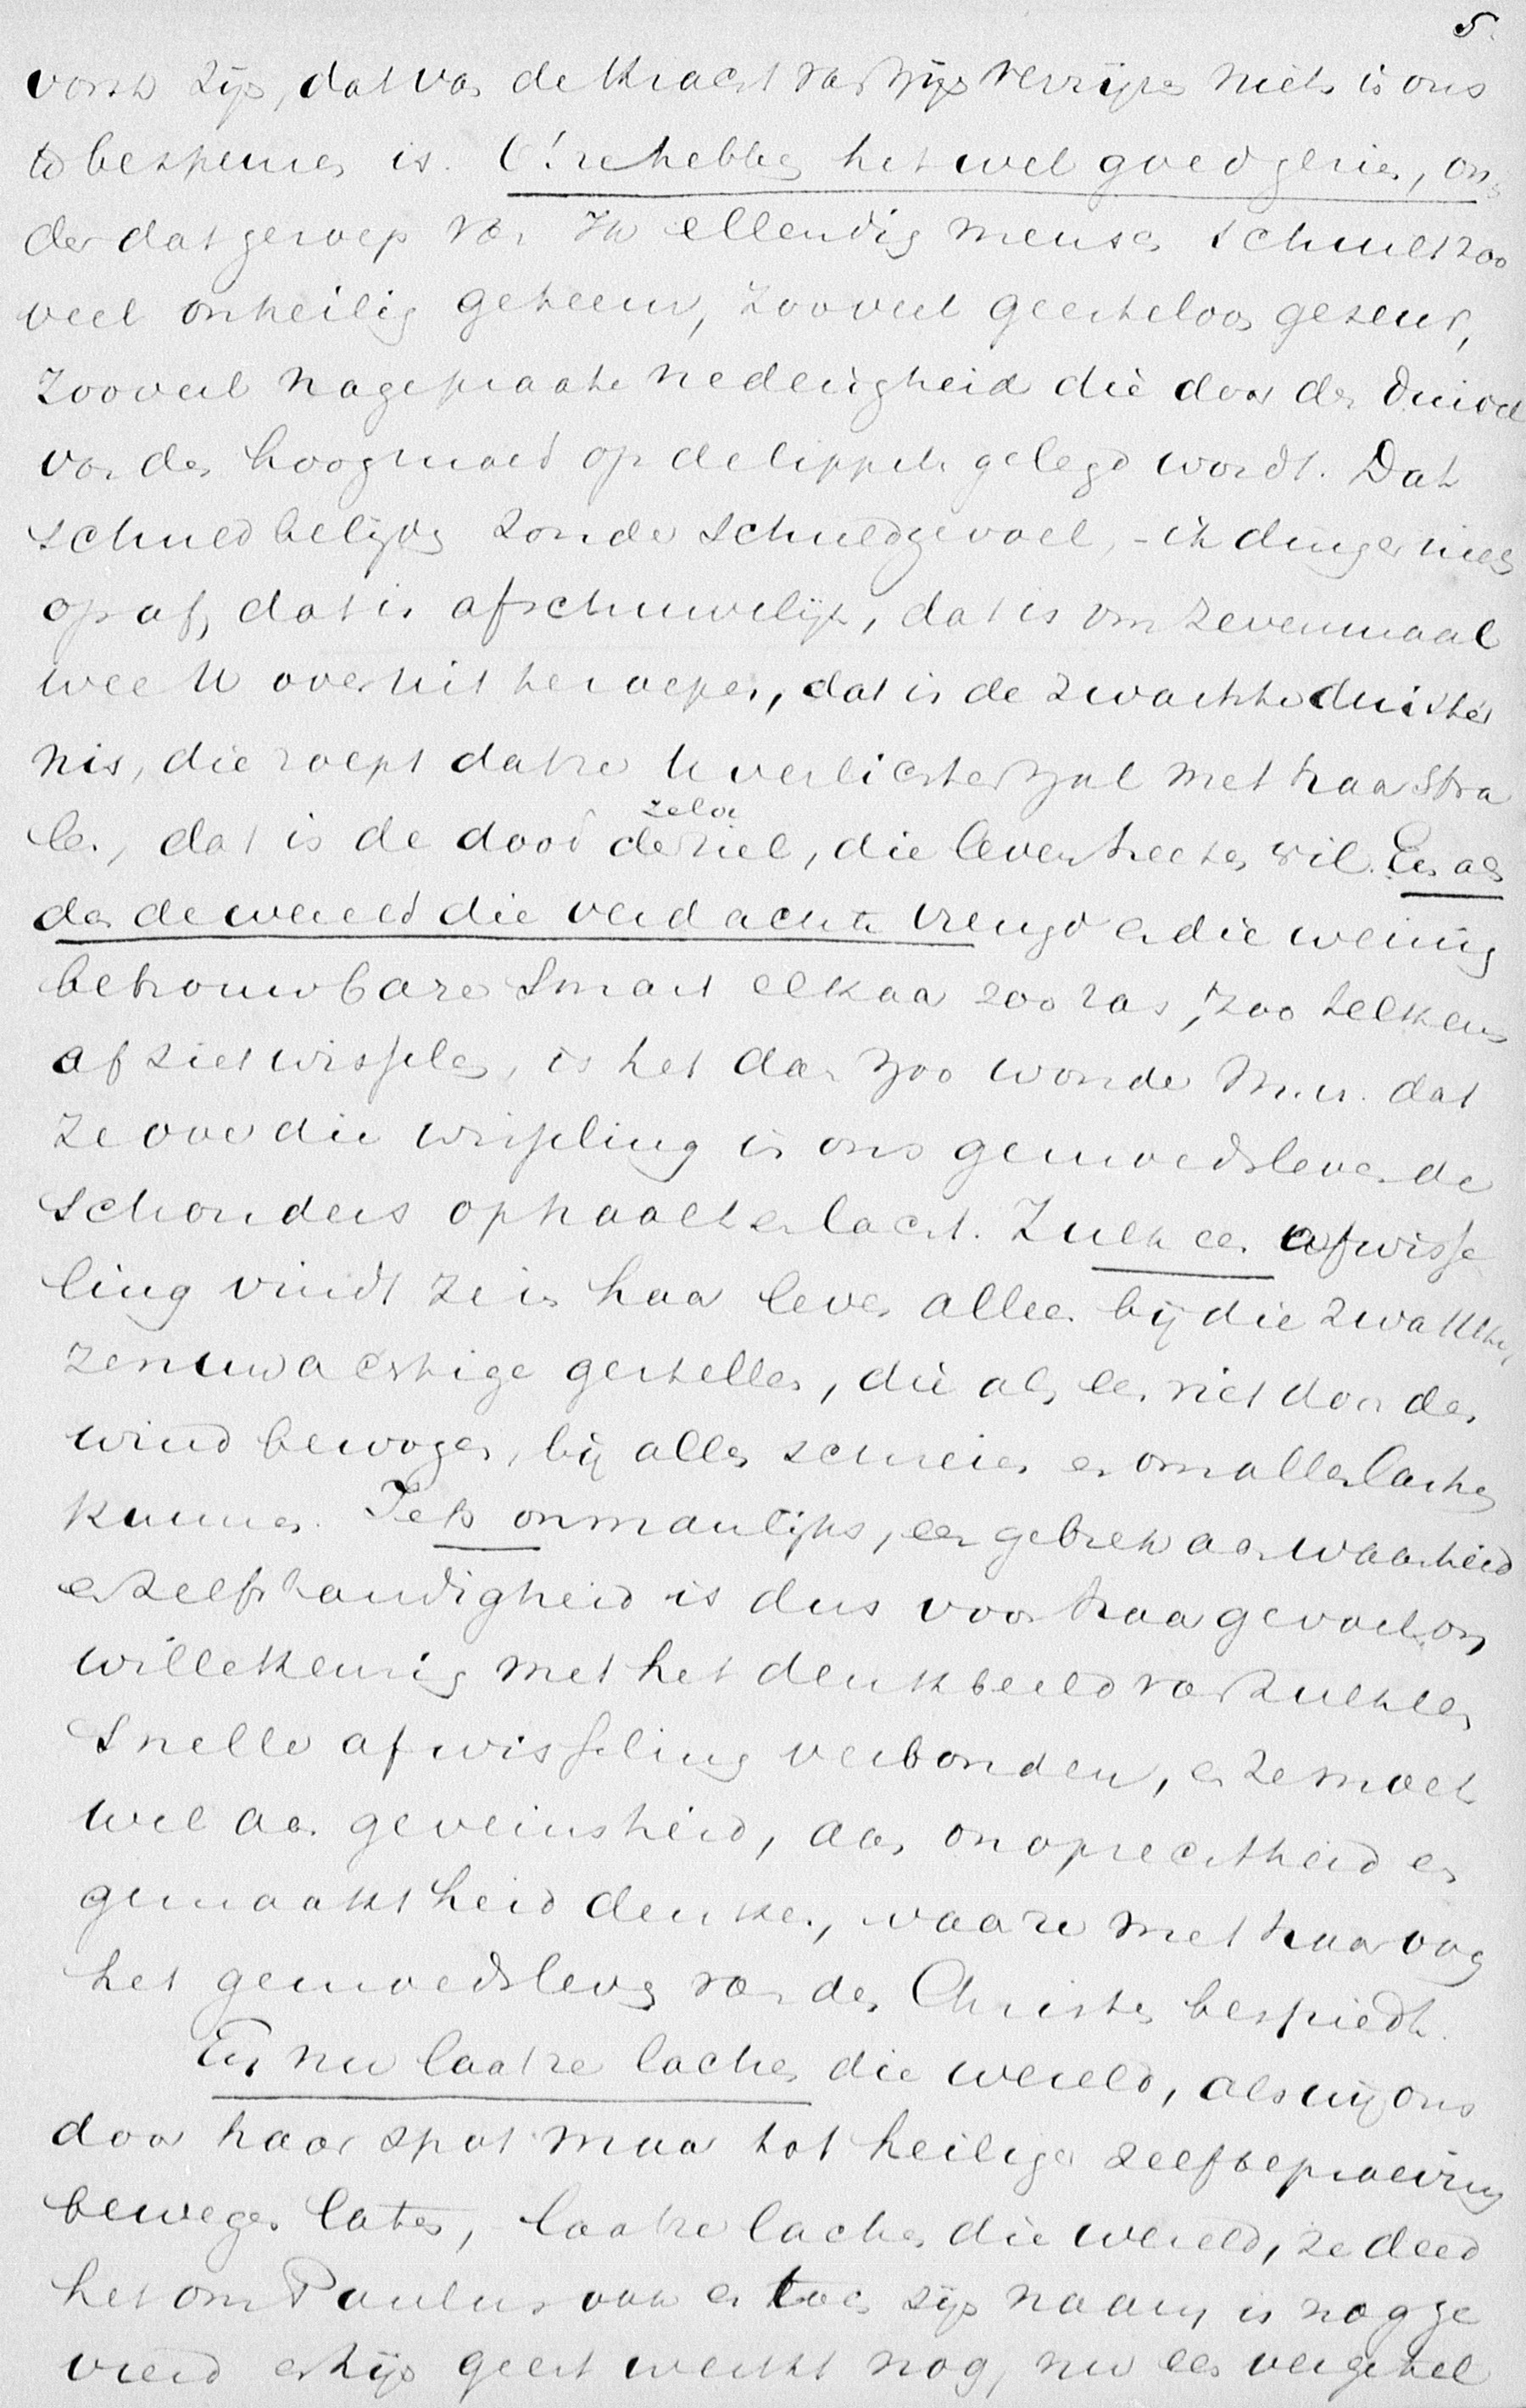 5.
vorst zijn, dat van de kracht van zijn verrijzen niets in ons
te bespeuren is. O! ze hebben het wel goed gezien, on-
der dat geroep van ik ellendig mensch schuilt zoo
veel onheilig geteem, zooveel geesteloos gezeur,
zooveel nagepraate nederigheid die door den duivel
van den hoogmoed op de lippen gelegd wordt. Dat
schuld belijden zonder schuldgevoel, - ik ding er niets
op af, dat is afschuwelijk, dat is om zevenmaal
wee U over uit te roepen, dat is de zwartste duister
nis, die roept dat ze U verlichten zal met haar stra
len, dat is de dood der ziel zelve, die leven heeten wil. En als
dan de wereld die verdachte vreugd en die weinig
betrouwbare smart elkaar zoo ras, zoo telkens
af ziet wisselen, is het dan zoo wonder M.H. dat
ze over die wisseling in ons gemoedsleven de
schouders ophaalt en lacht. Zulk een afwisse
ling vindt ze in haar leven alleen bij die zwakke,
zenuwachtige gestellen, die als een riet door den
wind bewogen, bij alles schreien en om alles lachen
kunnen. Iets onmanlijks, een gebrek aan waarheid
en zelfstandigheid is dus voor haar gevoel on
willekeurig met het denkbeeld van zulk een
snelle afwisseling verbonden, en ze moet
wel aan geveinsheid, aan onoprechtheid en
gemaaktheid denken, waar ze met haar oog
het gemoedsleven van den Christen bespiedt.
En nu laat ze lachen die wereld, als wij ons
door haar spot maar tot heilige zelfbeproeving
bewegen laten, laat ze lachen die wereld, ze deed
het om Paulus ook en toch zijn naam is nog ge
vierd en zijn geest werkt nog, nu een vergetel